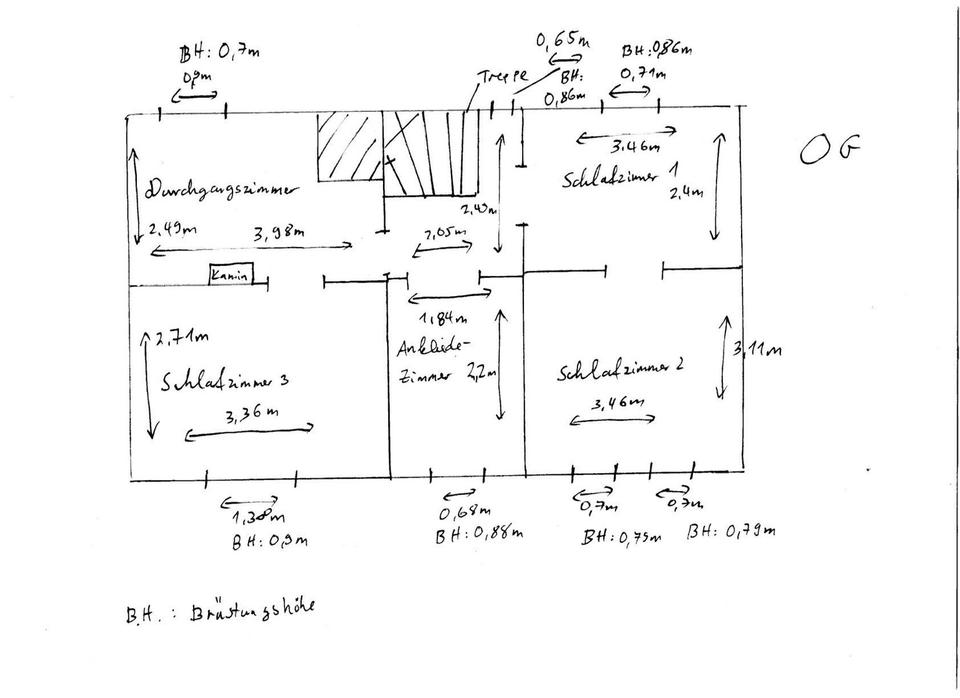 BH: 0,7m
0,9m
0,65m
BH:
0,86m
BH: 0,86m
0,71m
Treppe
OG
Durchgangszimmer
2,49m
3,98m
Kamin
2,05m
3,46m
Schlafzimmer 1
2,4m
2,71m
Schlafzimmer 3
3,36m
1,84m
Ankleide-
Zimmer 2,2m
Schlafzimmer 2
3,46m
3,11m
1,38m
BH: 0,9m
0,68m
BH: 0,88m
0,7m
0,7m
BH: 0,79m
BH: 0,79m
B.H. : Brüstungshöhe